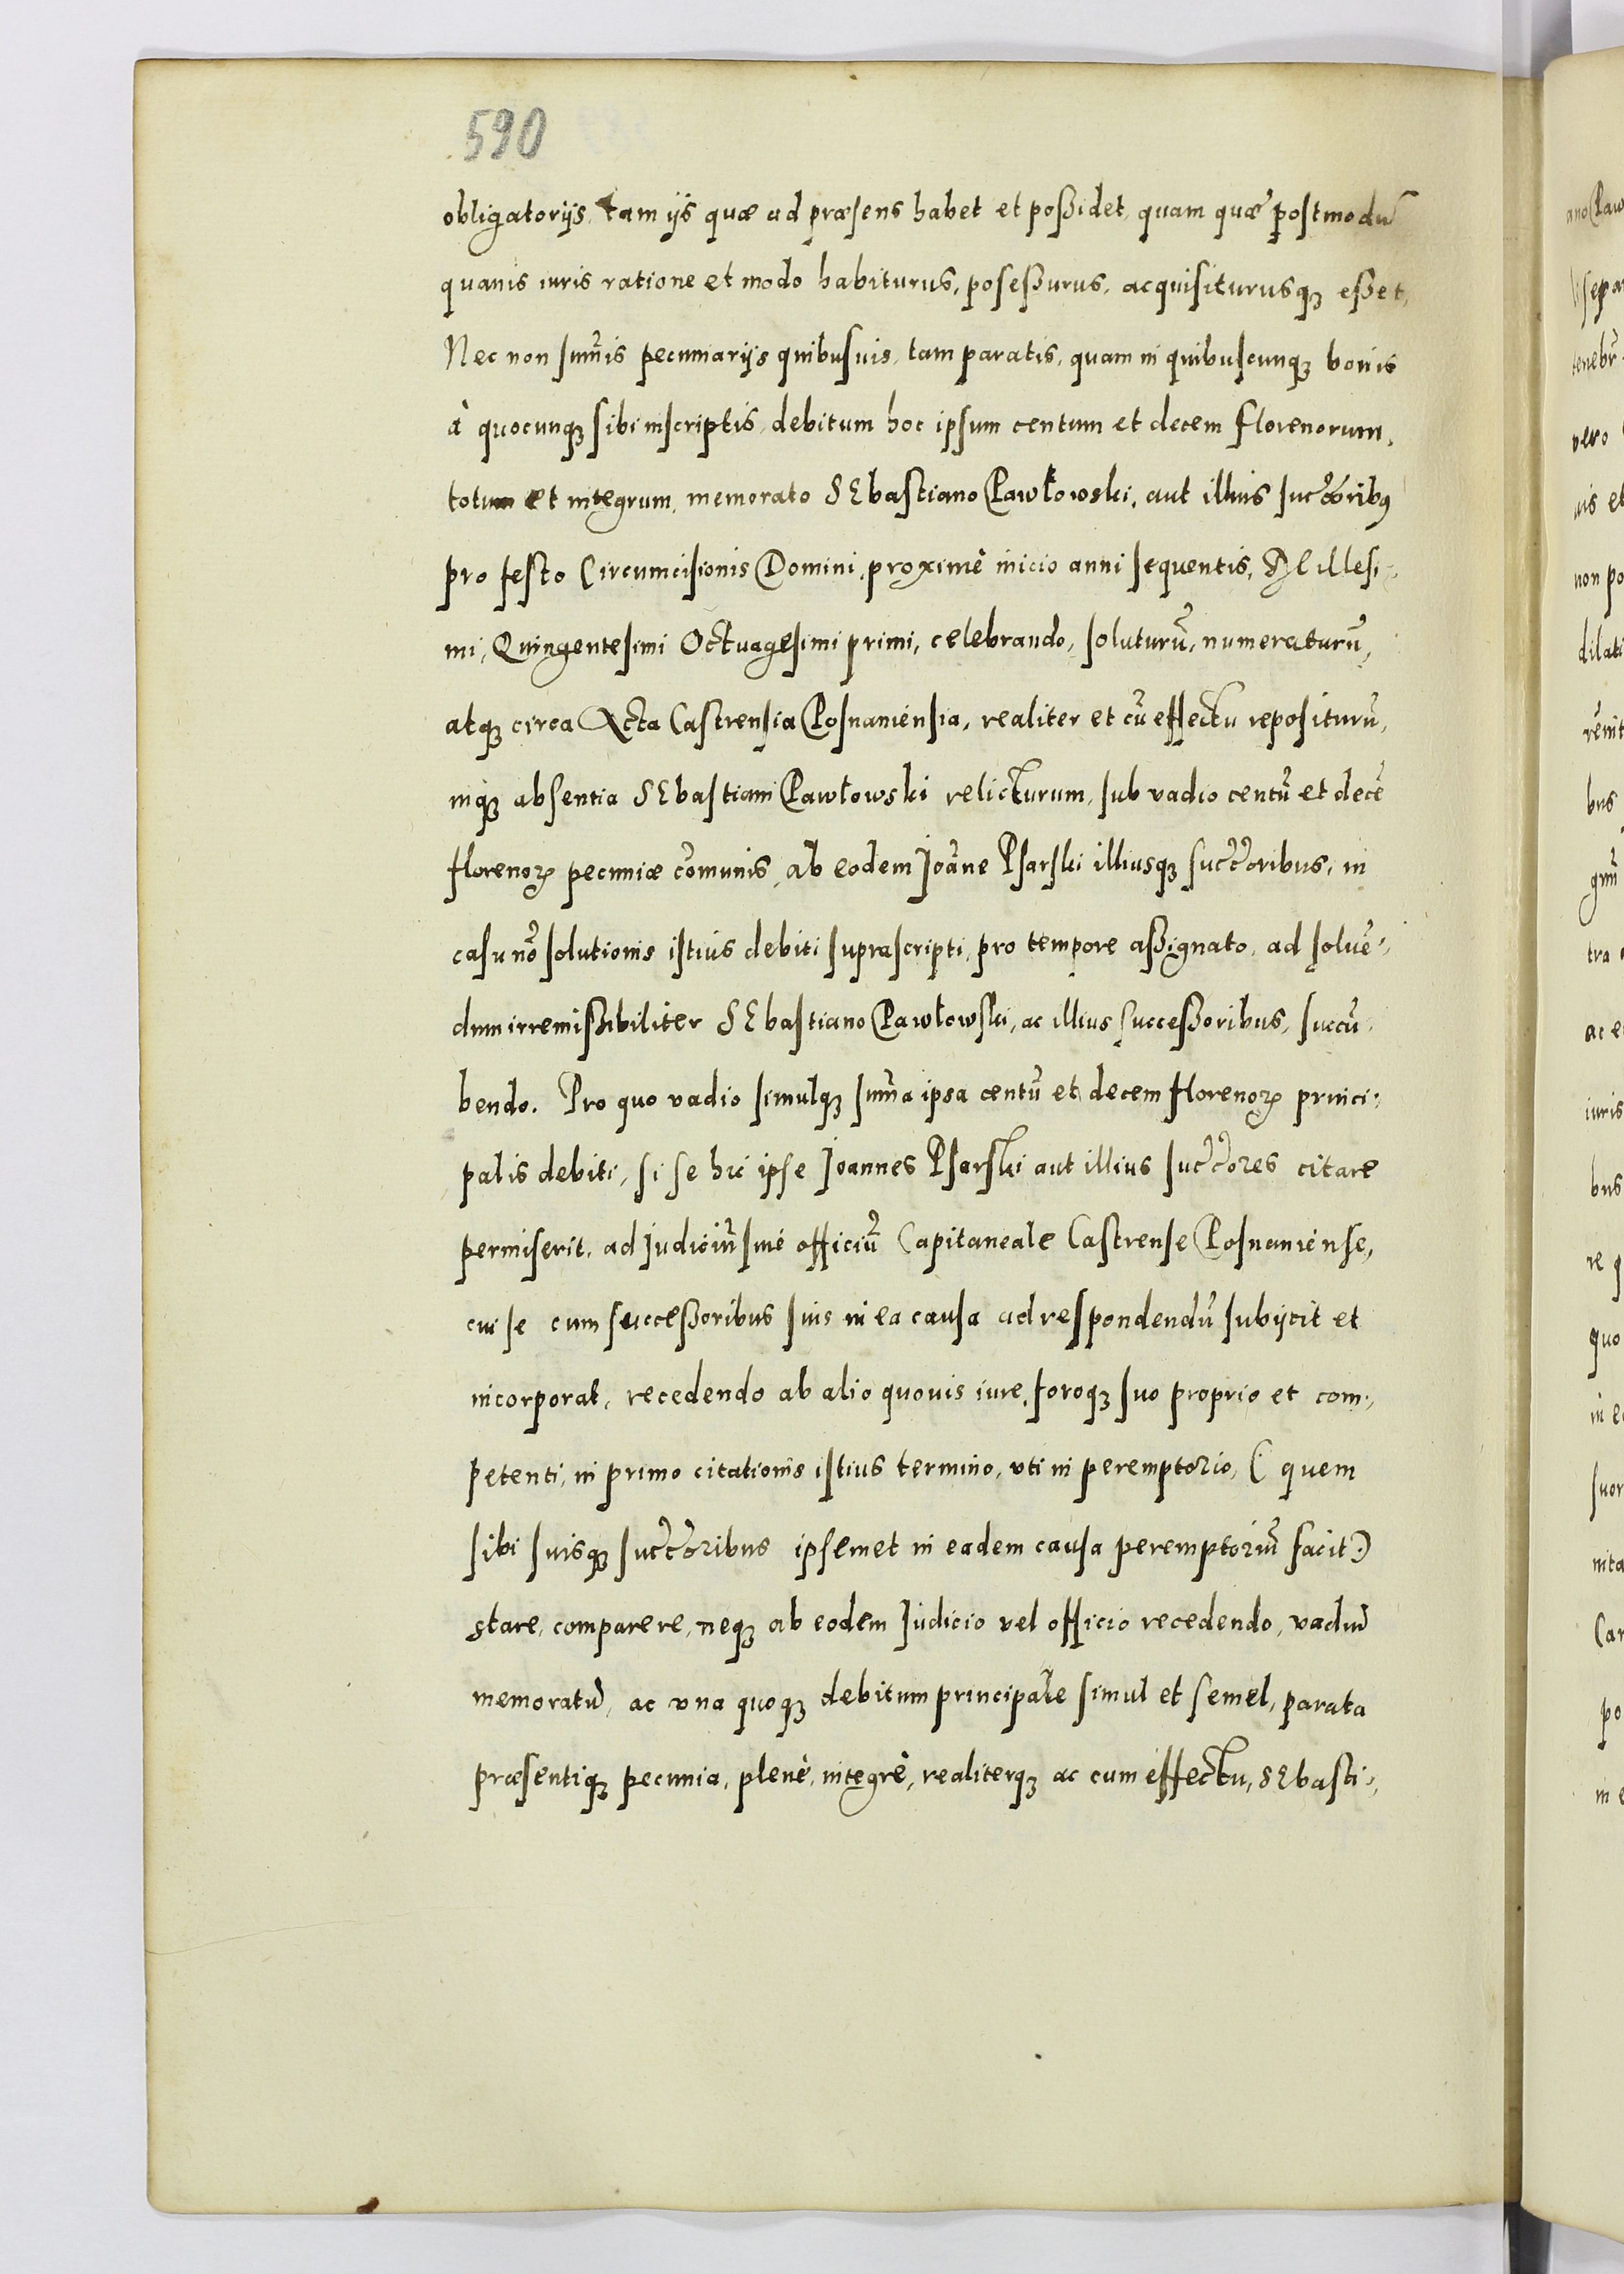 590
obligatorijs, tam ijs quæ ad præsens habet et poßidet, quam quæ postmodū
quauis iuris ratione et modo habiturus, poseßurus, acquisiturusqꝫ eßet,
Nec non sum̃is pecuniarijs quibusuis, tam paratis, quam in quibuscunqꝫ bonis
à quocunqꝫ sibi inscriptis, debitum hoc ipsum centum et decem florenorum,
totum et integrum, memorato SEbastiano Pawłowski, aut illius succ͂oribꝰ
pro festo Circumcisionis Domini, proximè inicio anni sequentis, Millesi-
mi, Quingentesimi Octuagesimi primi, celebrando, soluturū, numeraturū,
atqꝫ circa Acta Castrensia Posnaniensia, realiter et cū effectu repositurū,
inqꝫ absentia SEbastiani Pawłowski relicturum, sub vadio centū et decē
florenoꝝ pecuniæ cōmunis, ab eodem Joāne Psarski illiusqꝫ succ͂oribus, in
casu nō solutionis istius debiti suprascripti, pro tempore aßignato, ad soluē-
dum irremißibiliter SEbastiano Pawłowski, ac illius succeßoribus, succū-
bendo. Pro quo vadio simulqꝫ sum̃a ipsa centū et decem florenoꝝ princi-
palis debiti, si se hic ipse Joannes Psarski aut illius succ͂ores citare
permiserit, ad Judiciū siue officiū Capitaneale Castrense Posnaniense,
cui se cum succeßoribus suis in ea causa ad respondendū subijcit et
incorporat, recedendo ab alio quouis iure, foroqꝫ suo proprio et com-
petenti, in primo citationis istius termino, vti in peremptorio, (: quem
sibi suisqꝫ succ͂oribus ipsemet in eadem causa peremptoriū facit :)
stare, comparere, neqꝫ ab eodem Judicio vel officio recedendo, vadiū
memoratū, ac vna quoqꝫ debitum principale simul et semel, parata
præsentiqꝫ pecunia, plenè, integrè, realiterqꝫ ac cum effectu, SEbasti-